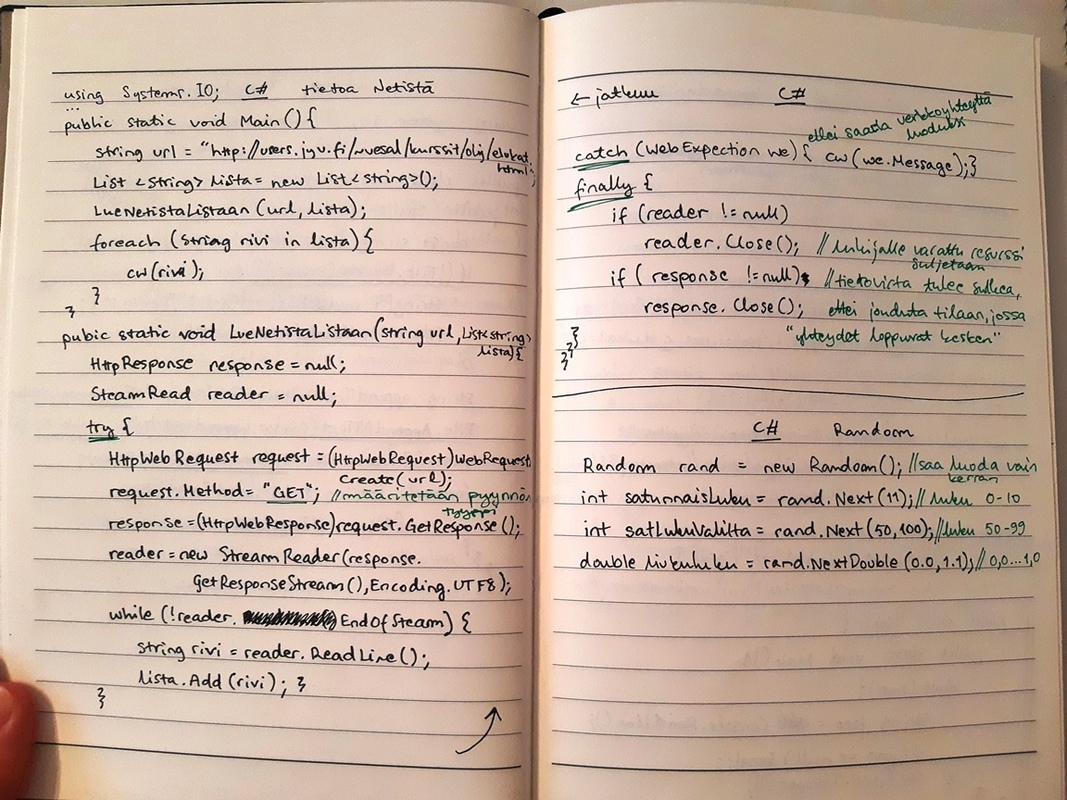 using Systems.IO; C# tietoa Netistä
...
public static void Main() {
string url = "http://users.jyu.fi/~vesal/kurssit/olig/elokat.
html";
List <string> lista = new List<string>();
LueNetistaListaan (url, lista);
foreach (string rivi in lista) {
cw(rivi);
}
}
pubic static void LueNetistaListaan(string url, List<string>
lista){
HttpResponse response = null;
SteamRead reader = null;
try {
HttpWebRequest request = (HttpWebRequest)WebRequest
Create(url);
request.Method= "GET"; //määritetään pyynnön
tyyppi
response=(HttpWebResponse)request.GetResponse();
reader = new StreamReader(response.
GetResponseStream(), Encoding.UTF8);
while (!reader. EndOfSteam) {
string rivi = reader.ReadLine();
lista.Add(rivi); }
}
← jatkuu C#
ellei saada verkkoyhteyttä
luoduksi
catch (WebExpection we) { cw(we.Message);}
finally {
if (reader != null)
reader.Close(); //lukijalle varattu resurssi
suljetaan
if (response != null) //tietovirta tulee sulkea,
response.Close(); ettei jouduta tilaan, jossa
"yhteydet loppuvat kesken"
}
}
}
C# Random
Random rand = new Random(); //saa luoda vain
kerran
int satunnaisluku = rand.Next(11); //luku 0-10
int satLukuValilta = rand.Next(50,100); //luku 50-99
double liukuluku = rand.NextDouble(0.0,1.1); //0,0...1,0